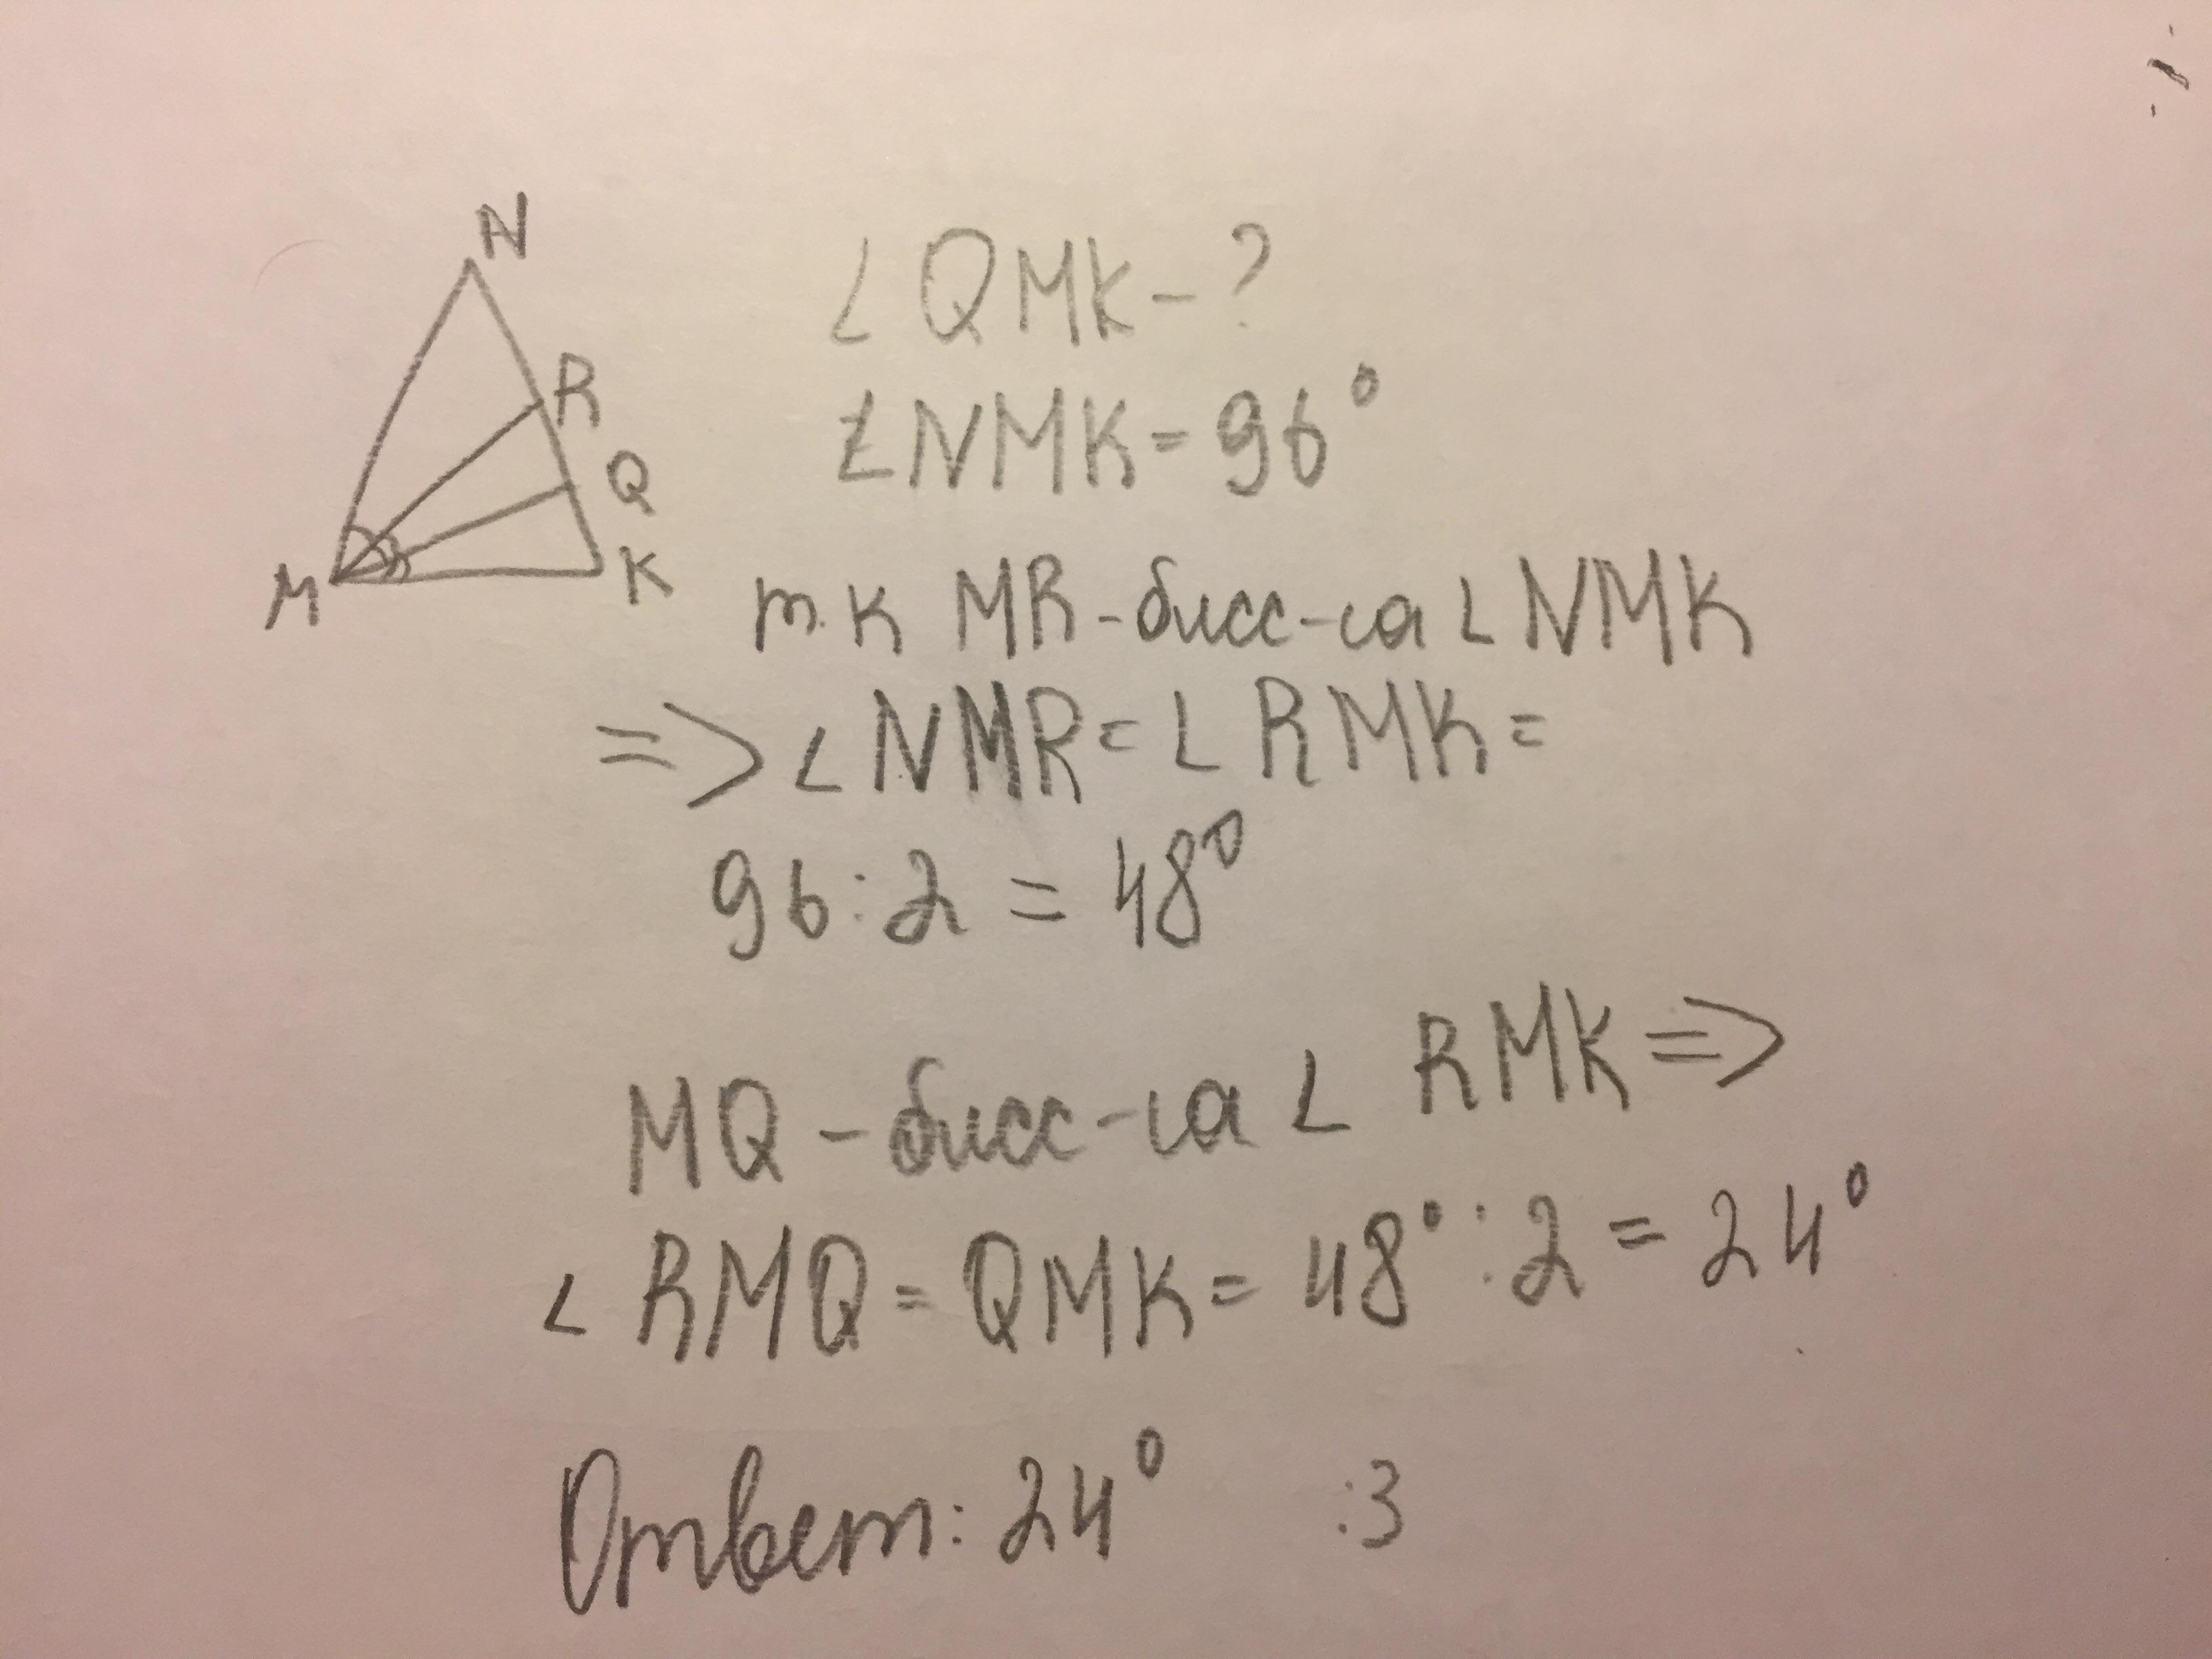 N
R
Q
M
K
∠QMK-?
∠NMK=96°
т.к MR-бисс-са ∠NMK
=>∠NMR=∠RMK=
96:2=48°
MQ-бисс-са ∠RMK=>
∠RMQ=QMK=48°:2=24°
Ответ: 24° :3